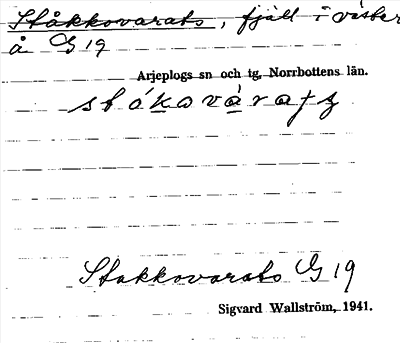 Ståkkovarats, fjäll i väster
å G 19
Arjeplogs sn och tg, Norrbottens län.
Stakkovarats G 19
Sigvard Wallström, 1941.